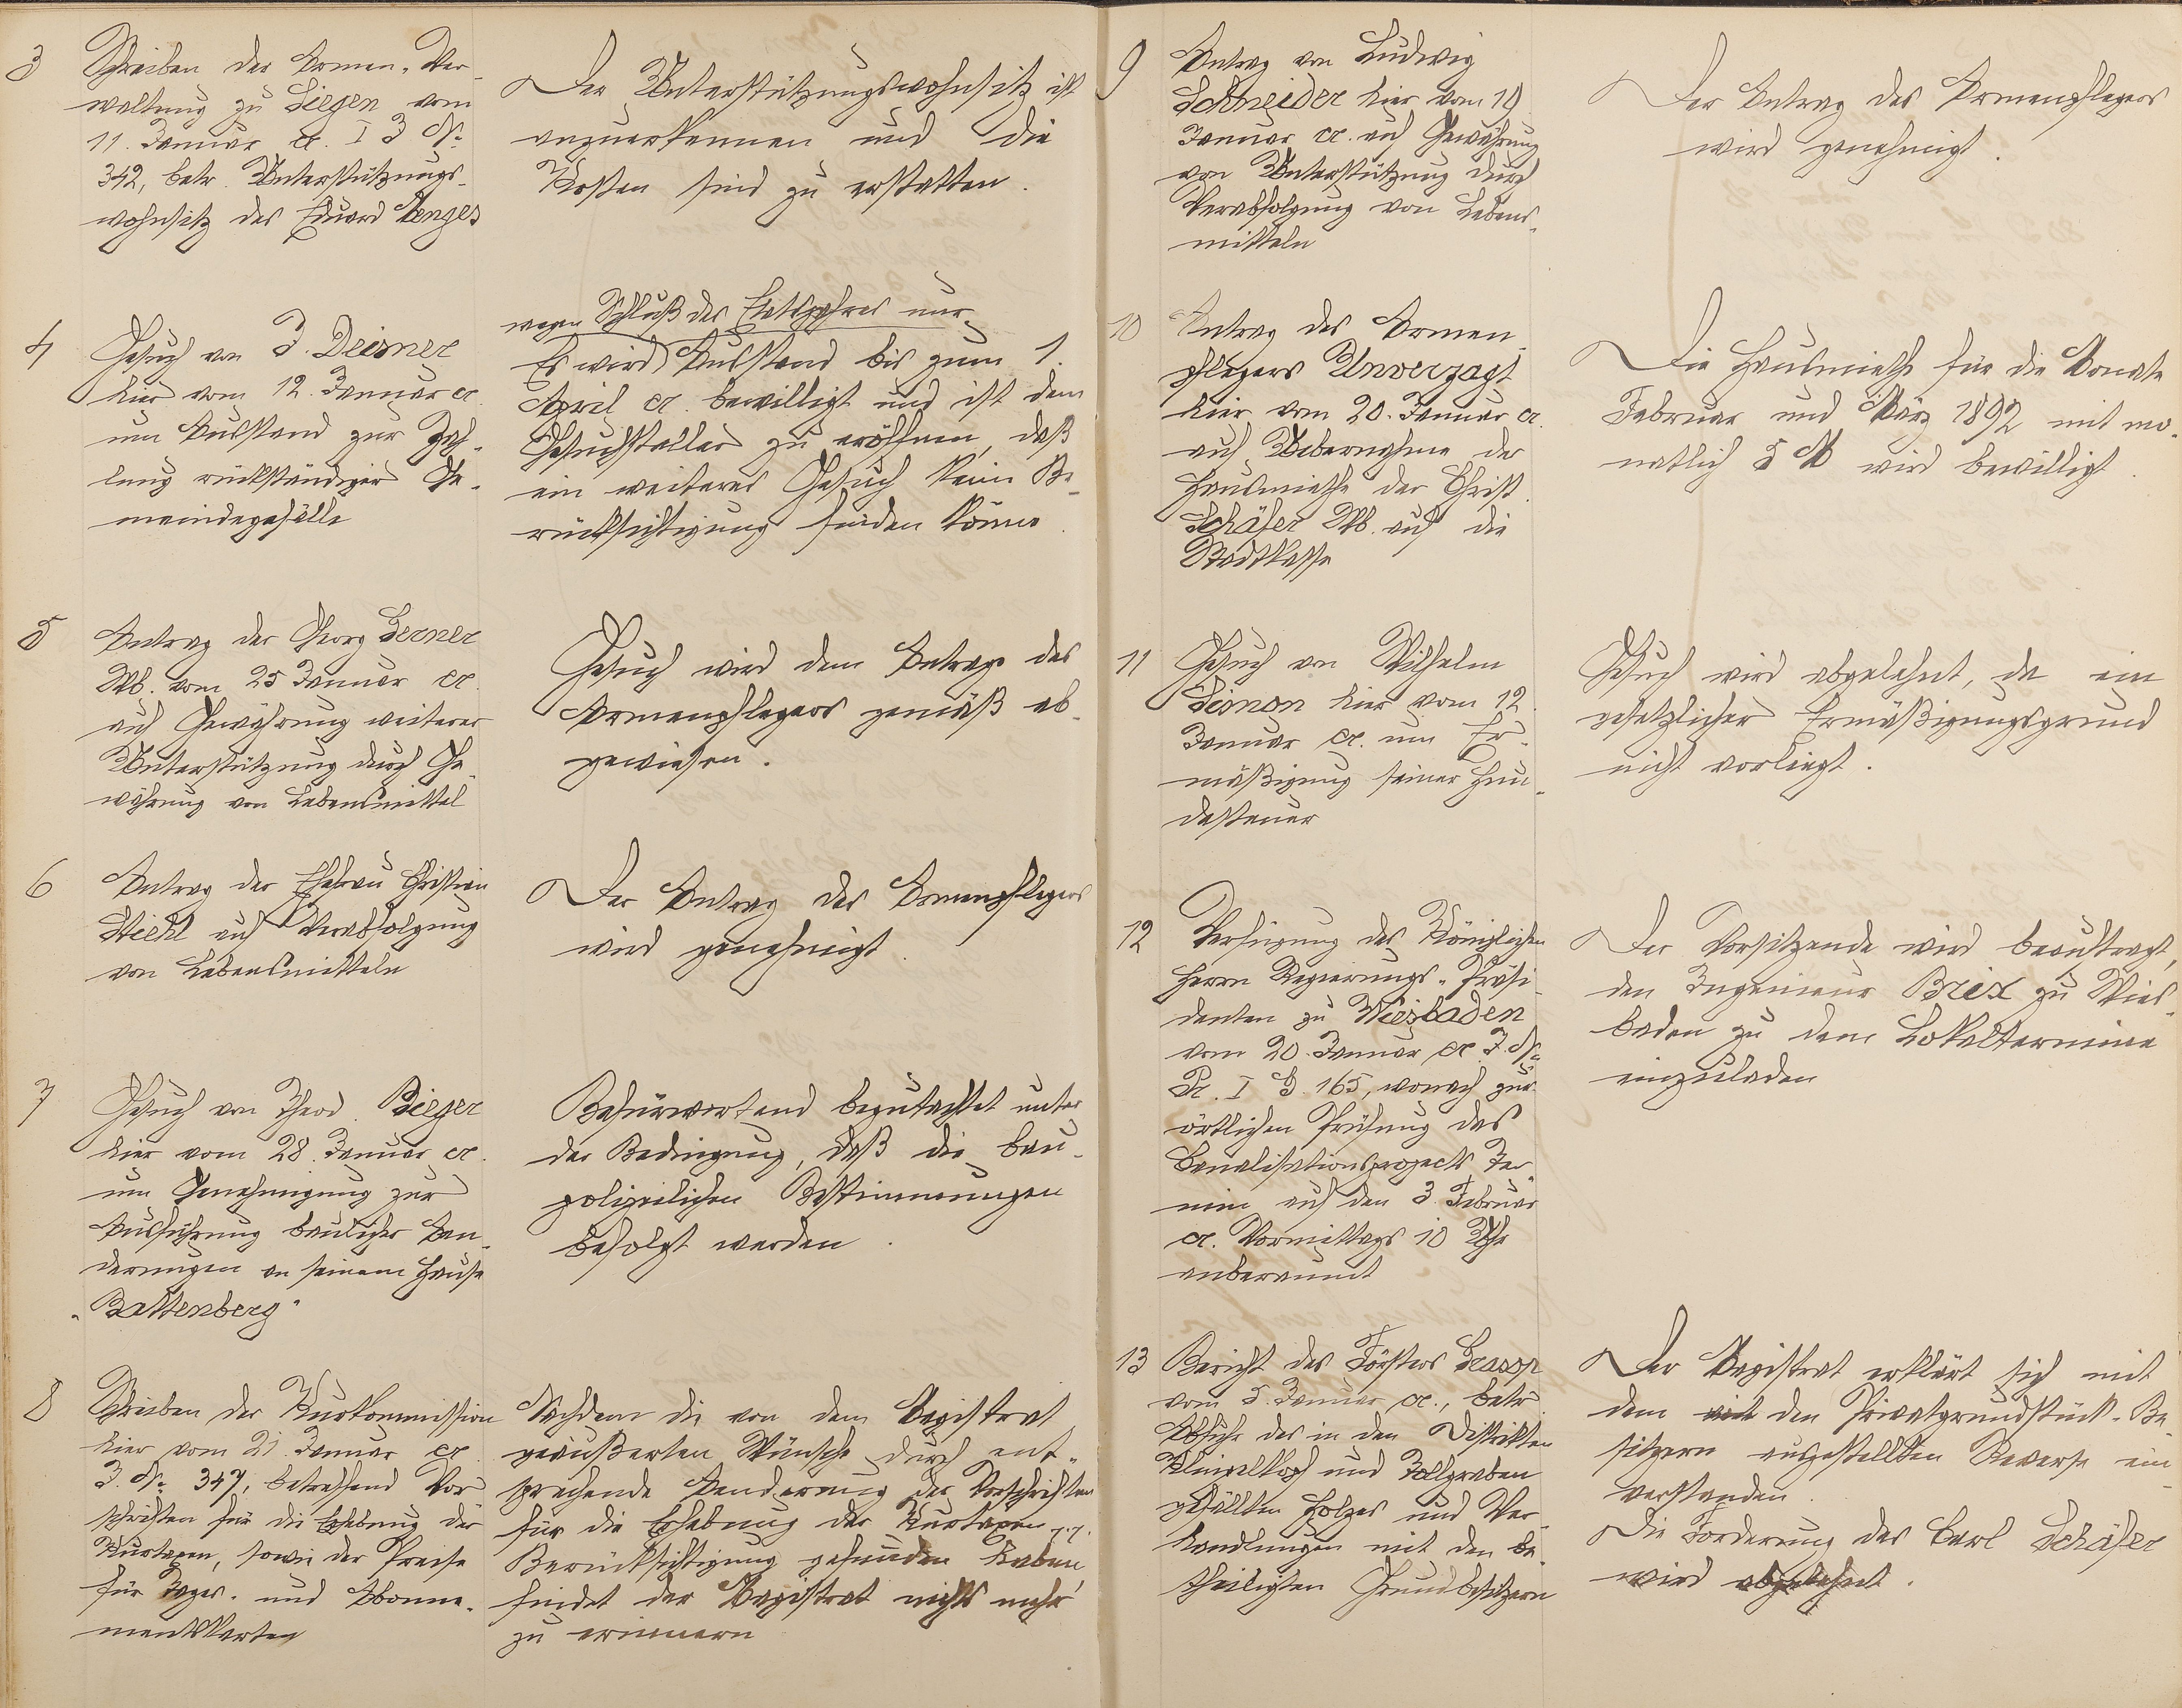 3
Schreiben der Armen-Ver-
waltung zu Siegen vom
11. Januar cr. I J No
342, betr. Unterstützungs-
wohnsitz des Eduard Menges
Der Unterstützungswohnsitz ist
anzuerkennen und die
Kosten sind zu erstatten.
4
Gesuch von J. Deisner
hier vom 12. Januar cr.
um Ausstand zur Zah-
lung rückständiger Ge-
meindegefälle
wegen Schluß des Etatsjahres nur
Es wird Ausstand bis zum 1.
April cr. bewilligt und ist dem
Gesuchsteller zu eröffnen, daß
ein weiteres Gesuch keine Be-
rücksichtigung finden könne.
5
Antrag der Georg Lerner
Wb. vom 25 Januar cr.
auf Gewährung weiterer
Unterstützung durch Ge-
währung von Lebensmittel
Gesuch wird dem Antrage des
Armenpflegers gemäß ab-
gewiesen.
6
Antrag der Ehefrau Christian
Diehl auf Verabfolgung
von Lebensmitteln
Der Antrag des Armenpflegers
wird genehmigt.
7
Gesuch von Theod. Bieger
hier vom 28. Januar cr.
um Genehmigung zur
Ausführung baulicher Aen-
derungen an seinem Hause
"Battenberg"
Befürwortend begutachtet unter
der Bedingung, daß die bau-
polizeilichen Bestimmungen
befolgt werden.
8
Schreiben der Kurkommission
hier vom 21. Januar cr.
J. No 347, betreffend Vor
schriften für die Erhebung der
Kurtaxen, sowie der Preise
für Tages- und Abonne-
mentskarten
Nachdem die von dem Magistrat
geäußerten Wünsche durch ent-
sprechende Aenderung der Vorschriften
für die Erhebung der Kurtaxen pp.
Berücksichtigung gefunden haben,
findet der Magistrat nichts mehr
zu erinnern
9
Antrag von Ludwig
Schneider hier vom 19
Januar cr. auf Gewährung
von Unterstützung durch
Verabfolgung von Lebens-
mitteln
Der Antrag des Armenpflegers
wird genehmigt.
10
Antrag des Armen-
pflegers Unverzagt
hier vom 20. Januar cr.
auf Uebernahme der
Hausmiethe der Christ.
Schäfer Wb. auf die
Stadtkasse
Die Hausmiethe für die Monate
Februar und März 1892 mit mo-
natlich 5 M wird bewilligt.
11
Gesuch von Wilhelm
Simon hier vom 12.
Januar cr. um Er-
mäßigung seiner Hun-
desteuer
Gesuch wird abgelehnt, da ein
gesetzlicher Ermäßigungsgrund
nicht vorliegt.
12
Verfügung des Königlichen
Herrn Regierungs-Präsi-
denten zu Wiesbaden
vom 20. Januar cr J. No
Pr. I G. 165, wonach zur
örtlichen Prüfung des
Canalisationsprojects Ter-
min auf den 3. Februar
cr. Vormittags 10 Uhr
anberaumt
Der Vorsitzende wird beauftragt,
den Ingenieur Brix zu Wies-
baden zu dem Lokaltermine
einzuladen
13
Bericht des Försters
vom 5. Januar cr., betr.
Abfuhr des in den Distrikten
und Zollgraben
gefällten Holzes und Ver-
handlungen mit den be-
theiligten Grundbesitzern
Der Magistrat erklärt sich mit
dem mit den Privatgrundstück-Be-
sitzern ausgestellten Reverse ein-
verstanden.
Die Forderung des Carl Schäfer
wird abgelehnt.